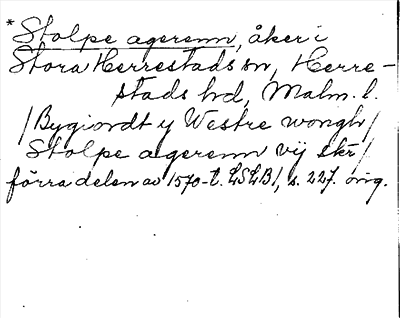 * Stolpe agerenn, åker i
Stora Herrestads sn, Herre-
stads hd, Malm. l.
/Bygiordt y Westre wongh/
Stolpe agerenn vij skr/
förra delen av 1570-t. LSLB/, s. 227. orig.